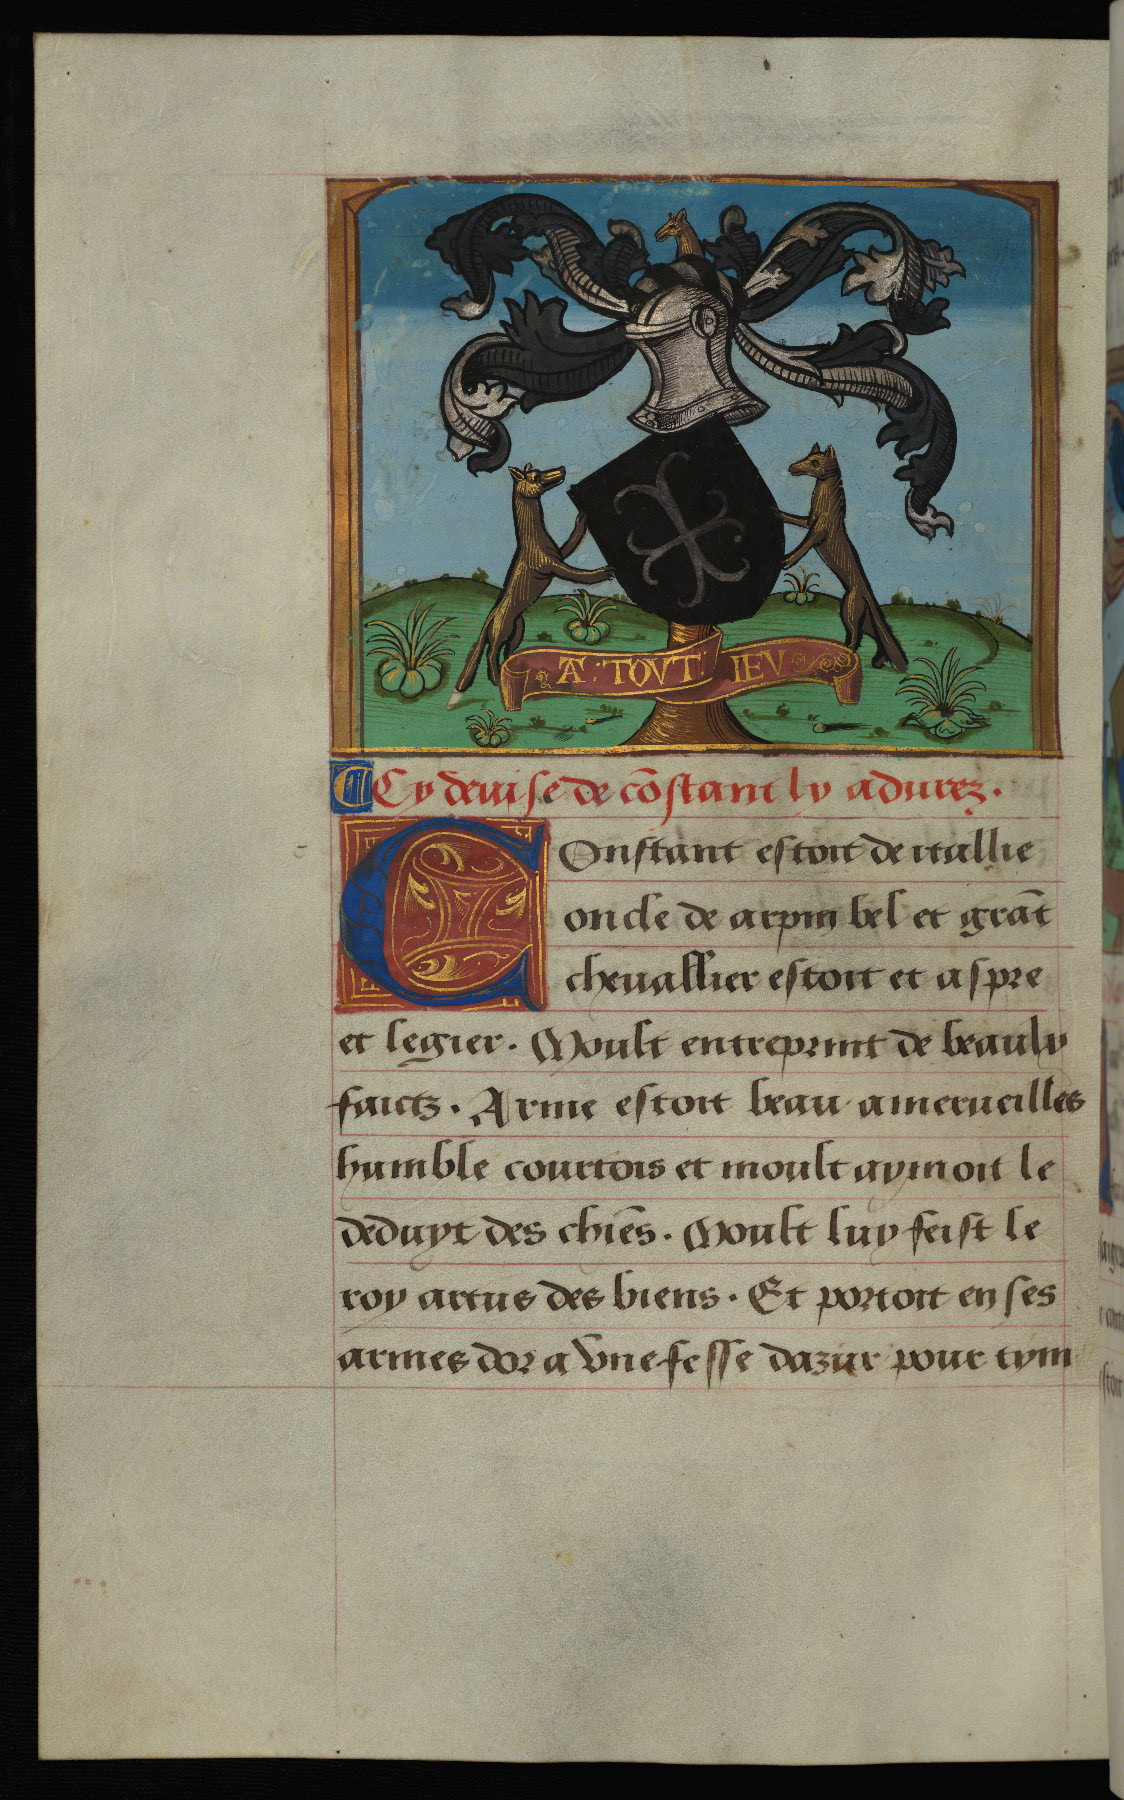 A : TOVT : IEV
Cy deuise de cõstant ly adurez.
Constant estoit de itallie
oncle de arpin bel et grãt
cheuallier estoit et aspre
et legier. Moult entreprint de beaulx
faictz. Arme estoit beau amerueilles
humble courtois et moult aymoit le
deduyt des chiẽs. Moult luy feist le
roy artus des biens. Et portoit en ses
armes dor a vne fesse dazur pour tym